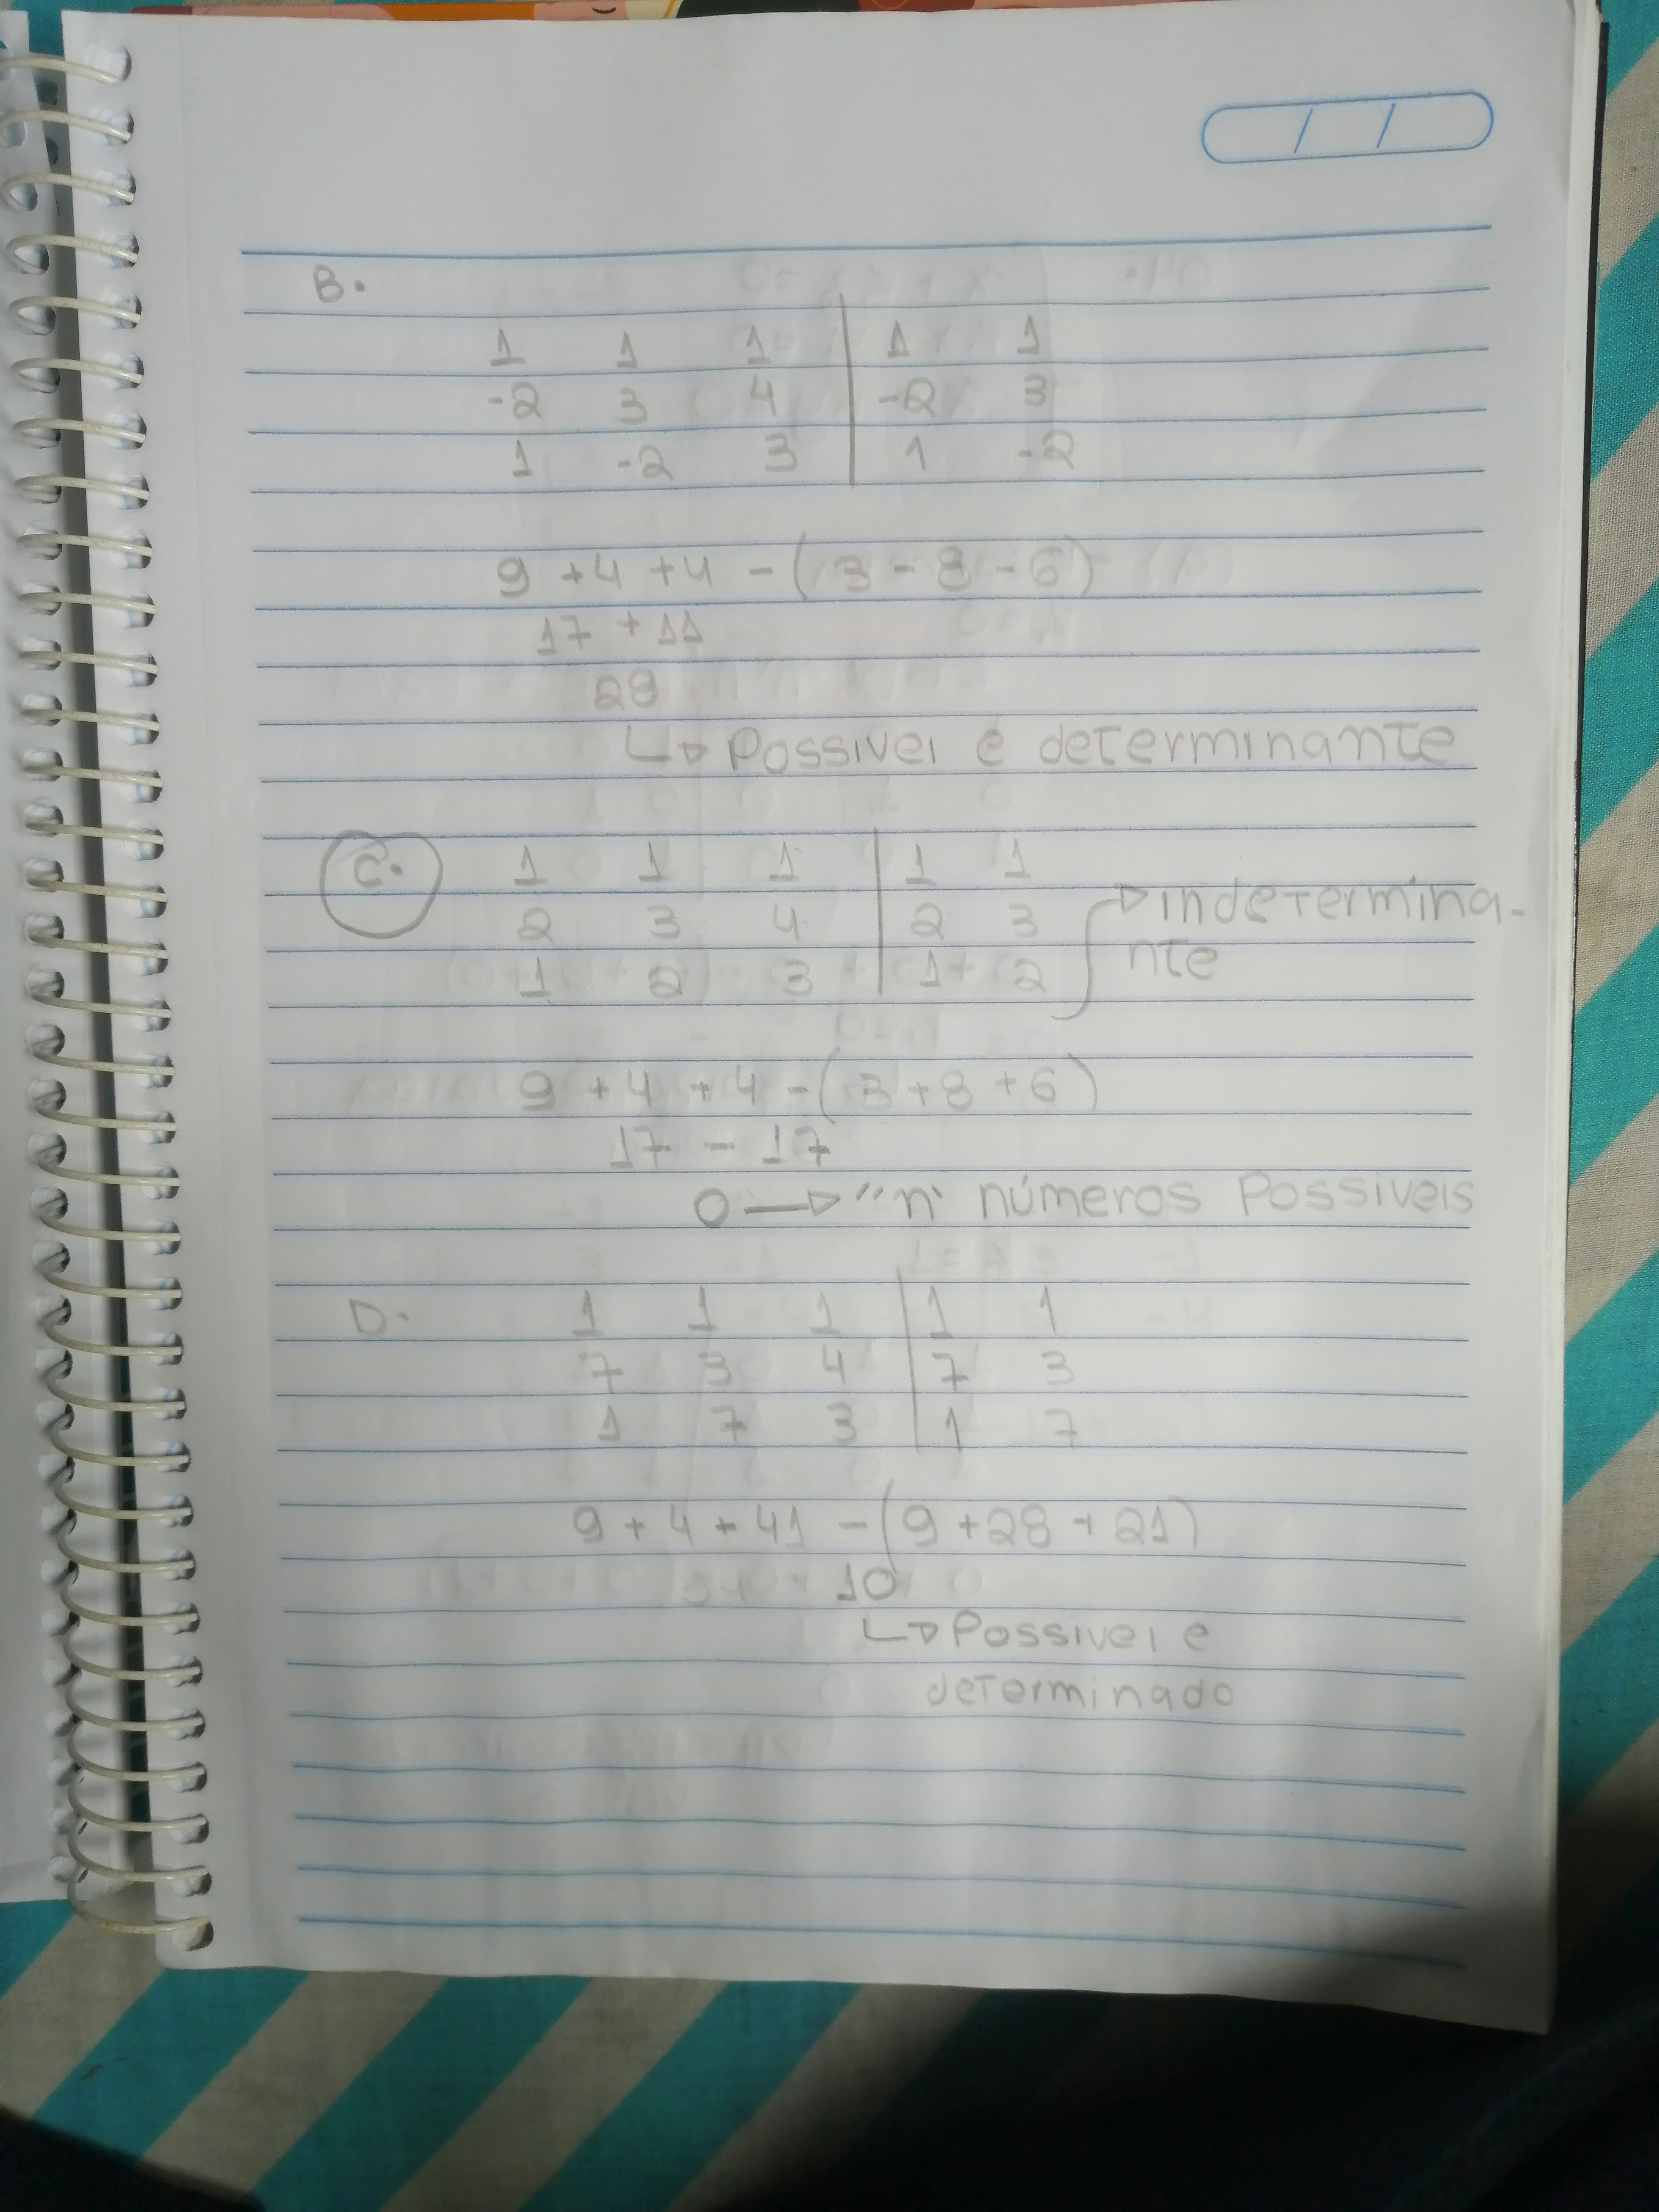 B.
1 1 1 | 1 1
-2 3 4 | -2 3
1 -2 3 | 1 -2
9 + 4 + 4 - ( 3 - 8 - 6 )
17 + 11
28
↳ Possivel e determinante
C. 1 1 1 | 1 1
2 3 4 | 2 3 → indetermina-
1 2 3 | 1 2 nte
9 + 4 + 4 - ( 3 + 8 + 6 )
17 - 17
0 → "n" números Possiveis
D. 1 1 1 | 1 1
7 3 4 | 7 3
1 7 3 | 1 7
9 + 4 + 41 - ( 9 + 28 + 21 )
10
↳ Possivel e
determinado